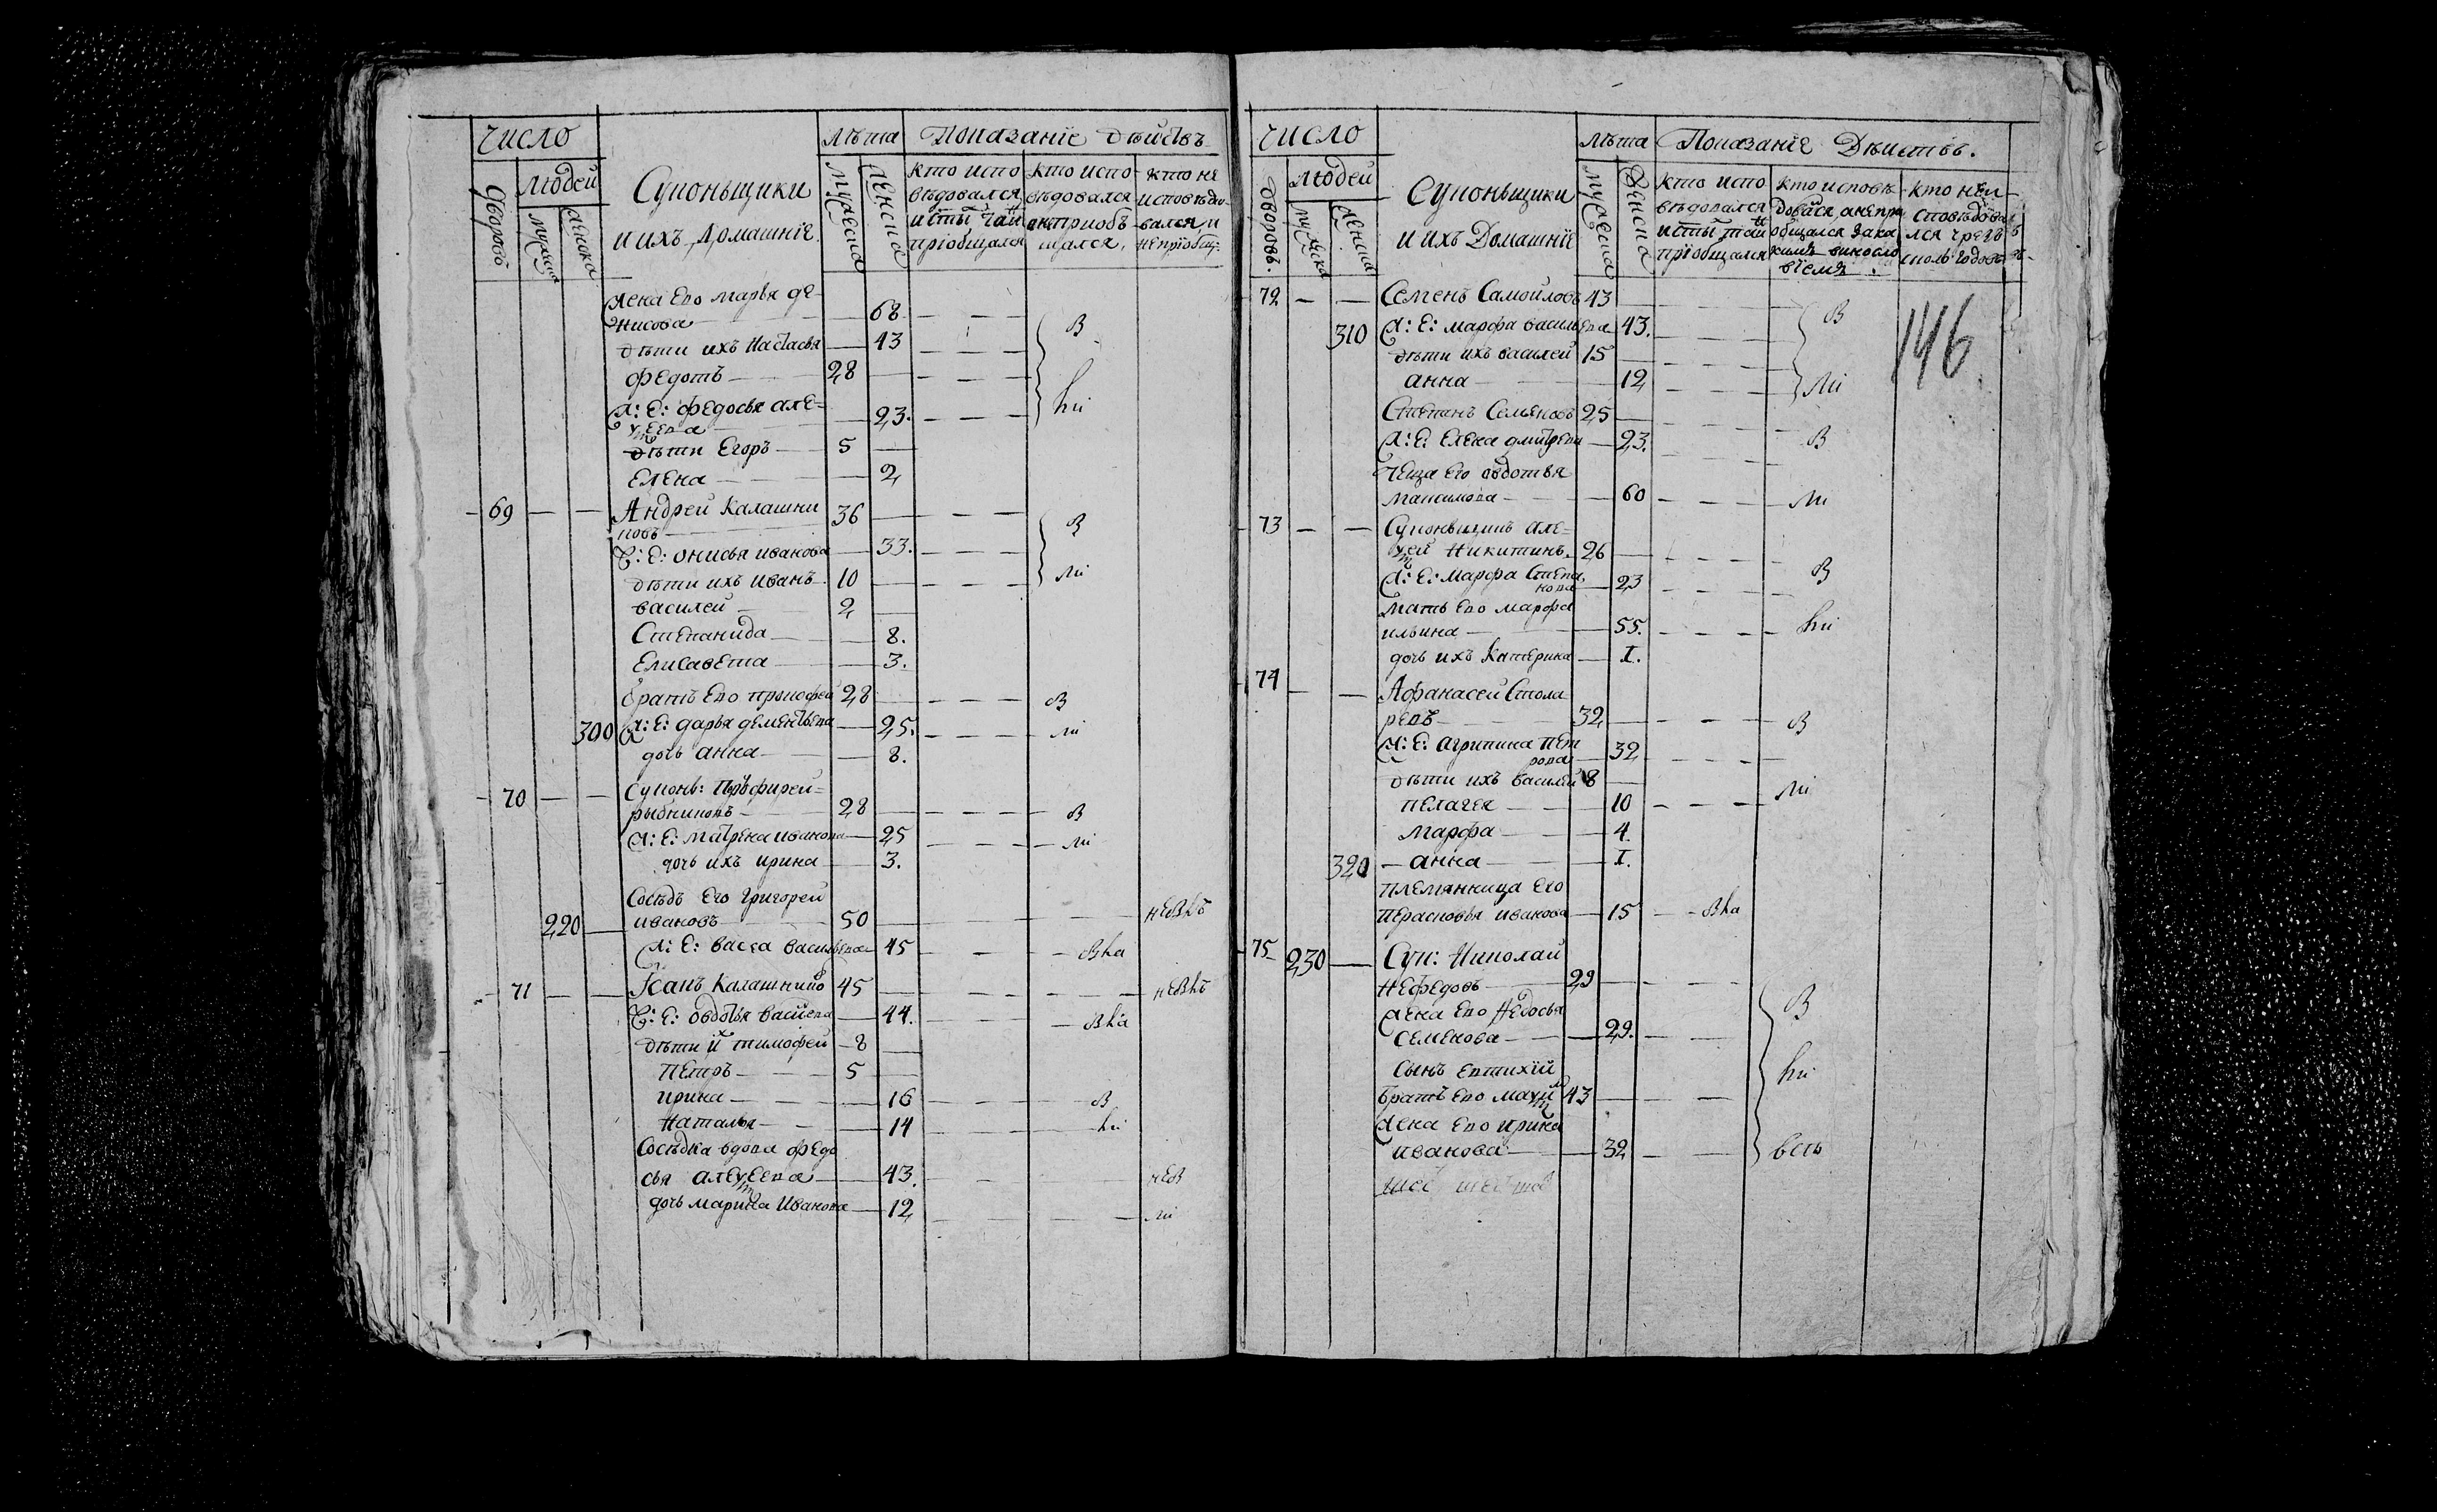 число
людей
Дворовъ
мужеска
женска
Супоньщики
и ихъ домашніе
лѣта
мужеска
женска
Показаніе дѣйствъ
кто испо
вѣдовался
и стыхъ таи
пріобщался
кто испо
вѣдовался
а не приобъ
щался
кто не
исповѣдо
вался и
не пріобщ:
жена его марья де-
нисова 68
дѣти ихъ настасья 43 В
федотъ 28
ж: е: федосья але-
ѯеева 23. ли
дѣти Егоръ 5
Елена 2
69 Андрей Калашни
ковъ 36 В
ж: е: онисья иванова 33.
дѣти ихъ иванъ 10 ли
василей 2
Степанида 8.
Елисавета 3.
братъ его прокофей 28 В
300 ж: е: дарья дементьева 25. ли
дочь анна 8.
70 Супонь: Пръфирей
рыбниковъ 28 В
ж: е: матрена иванова 25 ли
дочь ихъ ирина 3.
Сосѣдъ его григорей
220 ивановъ 50
ж: е: васса васильева 45
71 Іванъ Калашнико 45
ж: е: овдотья василева 44.
дѣти и тимофей 8
Петръ 5
ирина 16 В
Наталья 14 ли
Сосѣдка вдова федо
сья алеѯеева 43.
дочь марина иванова 12 ли
число
людей
дворовъ.
мужеска
женска
Супоньщики
и ихъ Домашніе
лѣта
мужеска
женска
Показаніе Дѣиствъ.
кто испо
вѣдовался
и стыхъ таи
пріобщался
кто исповѣ
довался а непри
общался зака
кимъ виносло
віемъ.
кто неи
сповѣдова
лся чрезъ
сколь годовъ
146
72 Семенъ Самойловъ 43
310 ж: е: марфа васильева 43. В
дѣти ихъ василей 15
анна 12 ли
Степанъ Семеновъ 25
ж: е: Елена дмитрева 23. В
теща его овдотья
максимова 60 ли
73 Супоньщикъ але-
ѯей Никитинъ. 26
ж: е: Марфа Степа
нова 23 В
мать его марфа
ильина 55. ли
дочь ихъ катерина 1.
74 Афанасей Стола
ревъ 32 В
ж: е: агрипина пет
рова 32
дѣти ихъ василей 8
пелагея 10 ли
марфа 4.
320 анна 1.
племянница его
Перасковья иванова 15
75 230 Суп: Николай
Нефедовъ 29
жена его Федосья В
семенова 29.
сынъ евтихій ли
братъ его маѯим 43
жена его ирина
иванова 32